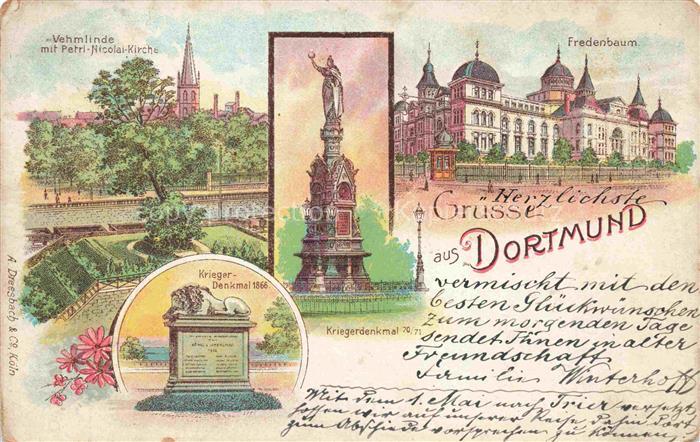 Vehmlinde
mit Petri-Nicolai-Kirche
Fredenbaum.
"Herzlichste
Grüsse
aus DORTMUND
vermischt mit den
besten Glückwünschen
zum morgenden Tage
sendet Ihnen in alter
Freundschaft
Familie Winterhoff
Krieger-
Denkmal 1866.
Kriegerdenkmal 70/71.
A. Dreesbach & Co, Köln
Mit dem 1. Mai nach Trier versetzt
hoffen wir auf unserer Reise dahin dort
zum Abschiede vorsprechen zu können